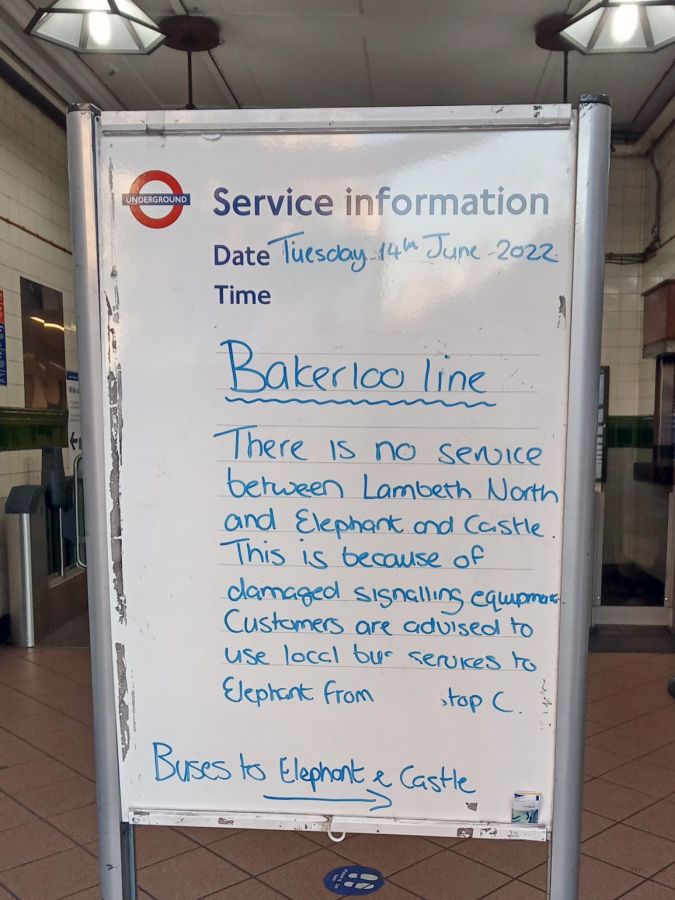 UNDERGROUND
Service information
Date Tuesday 14th June 2022
Time
Bakerloo line
There is no service
between Lambeth North
and Elephant and Castle.
This is because of
damaged signalling equipment
Customers are advised to
use local bus services to
Elephant from stop C.
Buses to Elephant & Castle